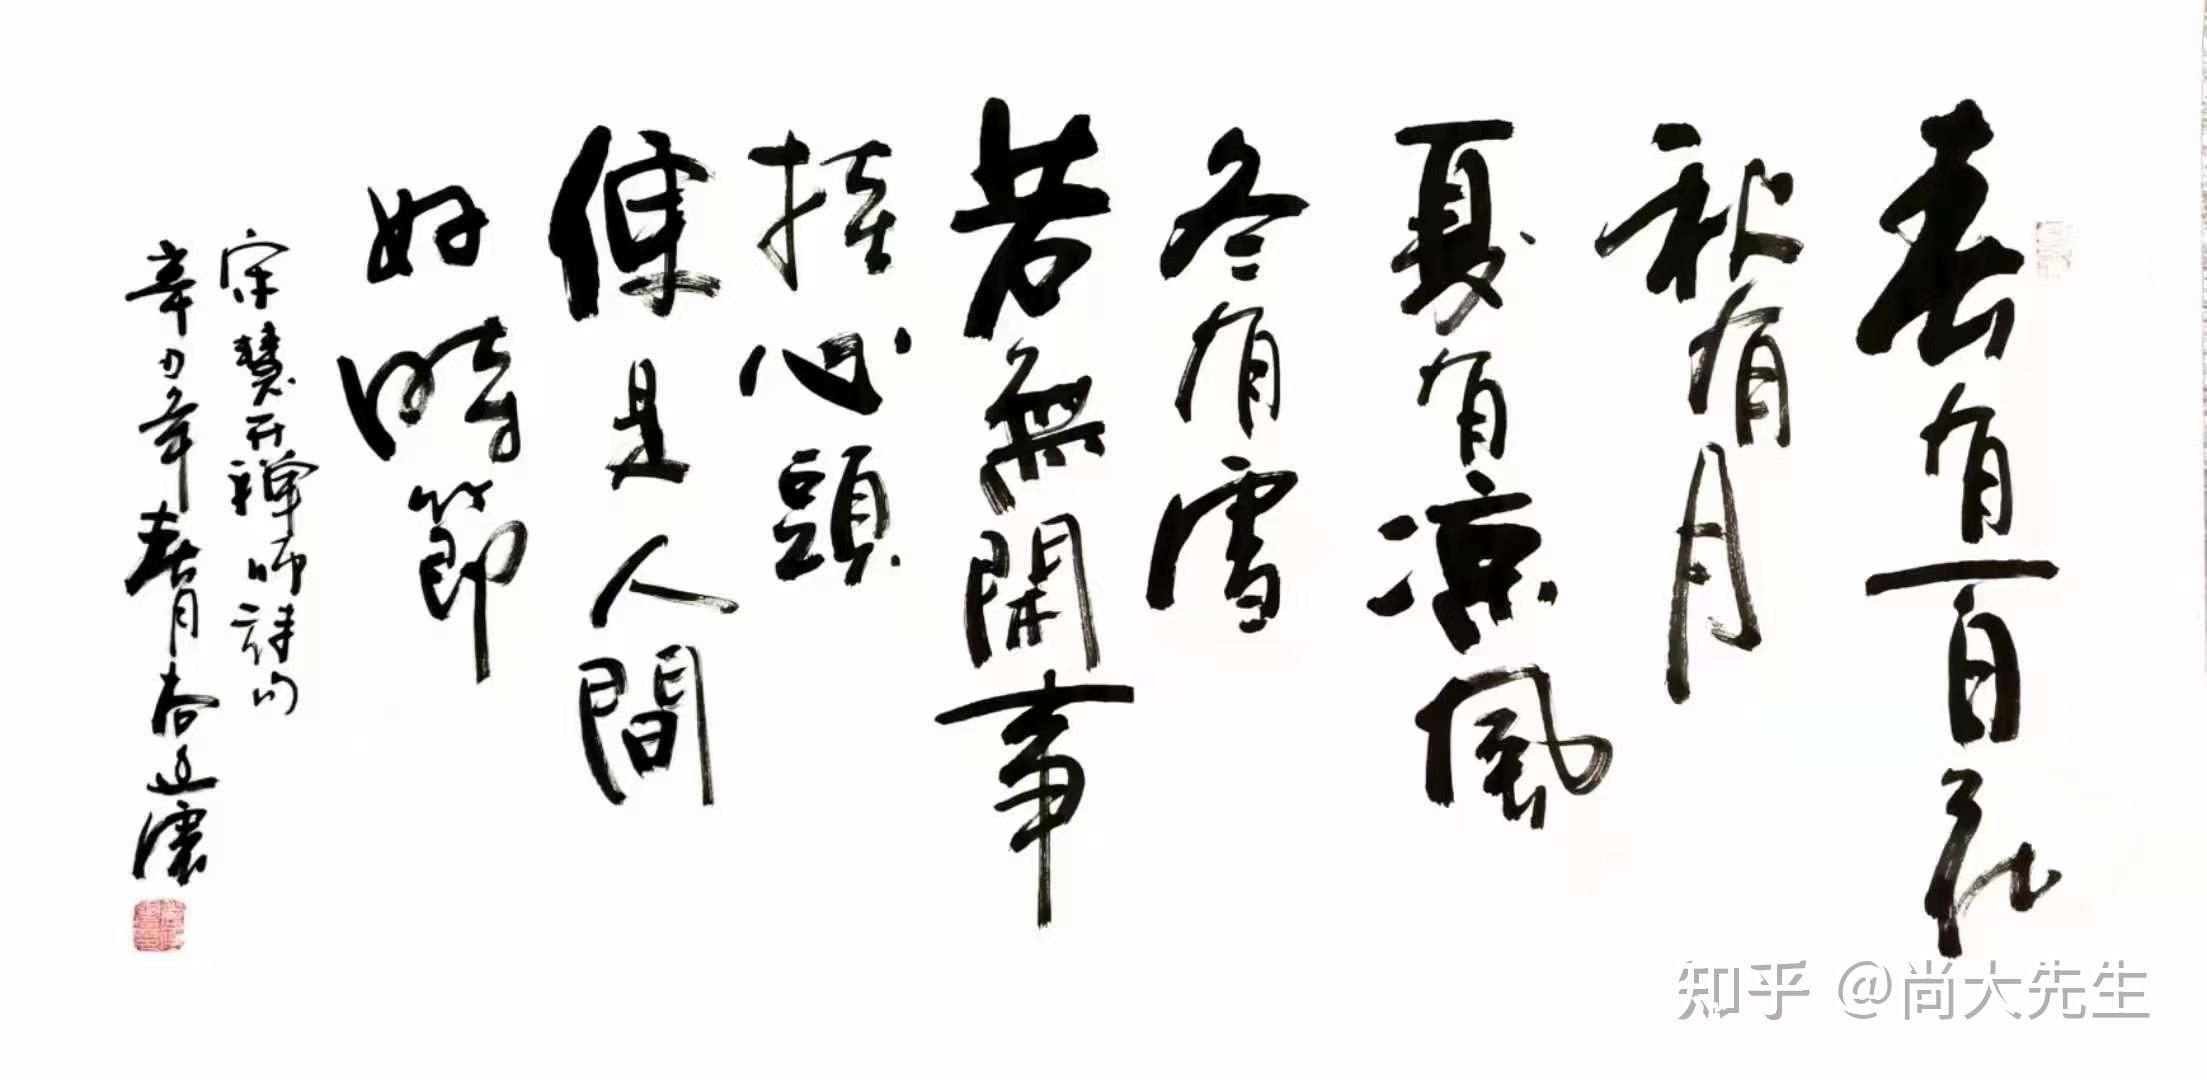 春有百花
秋有月
夏有凉風
冬有雪
若無閑事
挂心頭
便是人間
好時節
宋慧开禅师詩句
辛丑年春月
知乎 @尚大先生